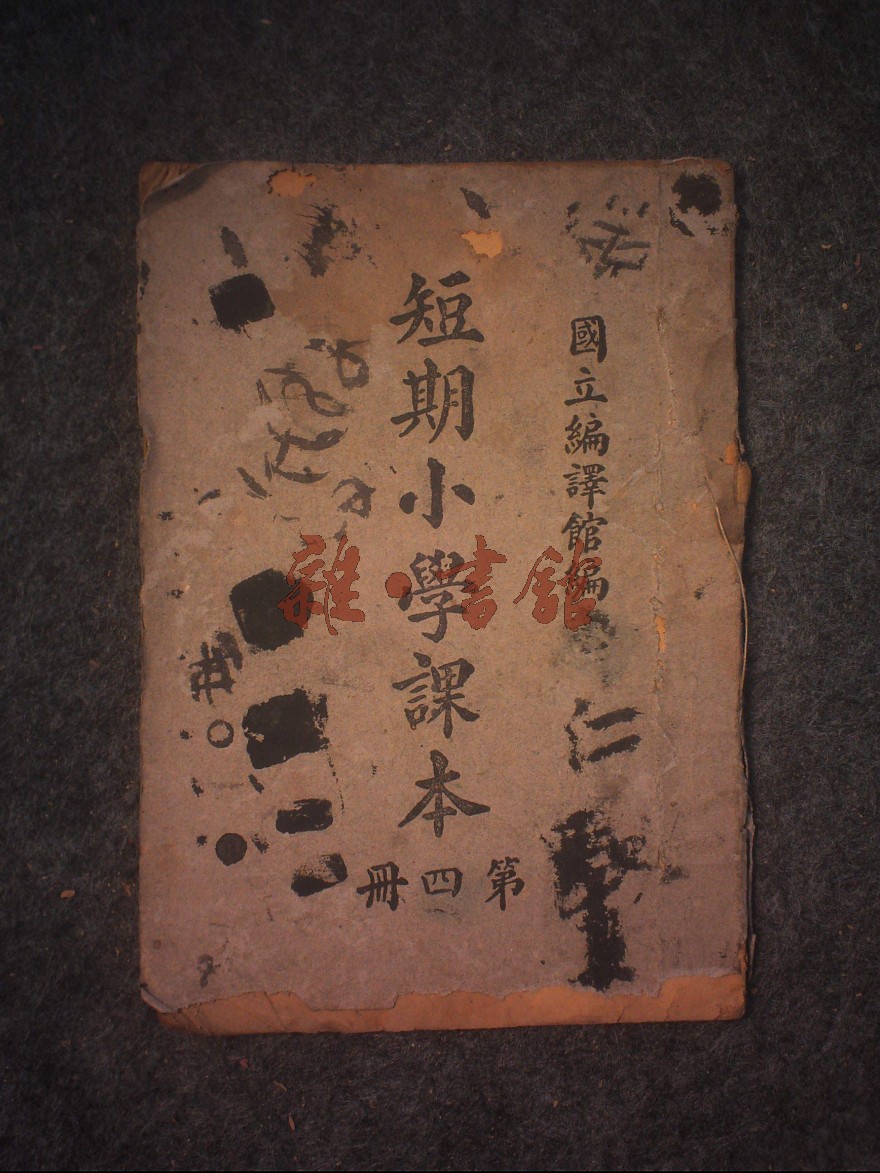 國立編譯館編
仁
短期小學課本
第四冊
雜·書館